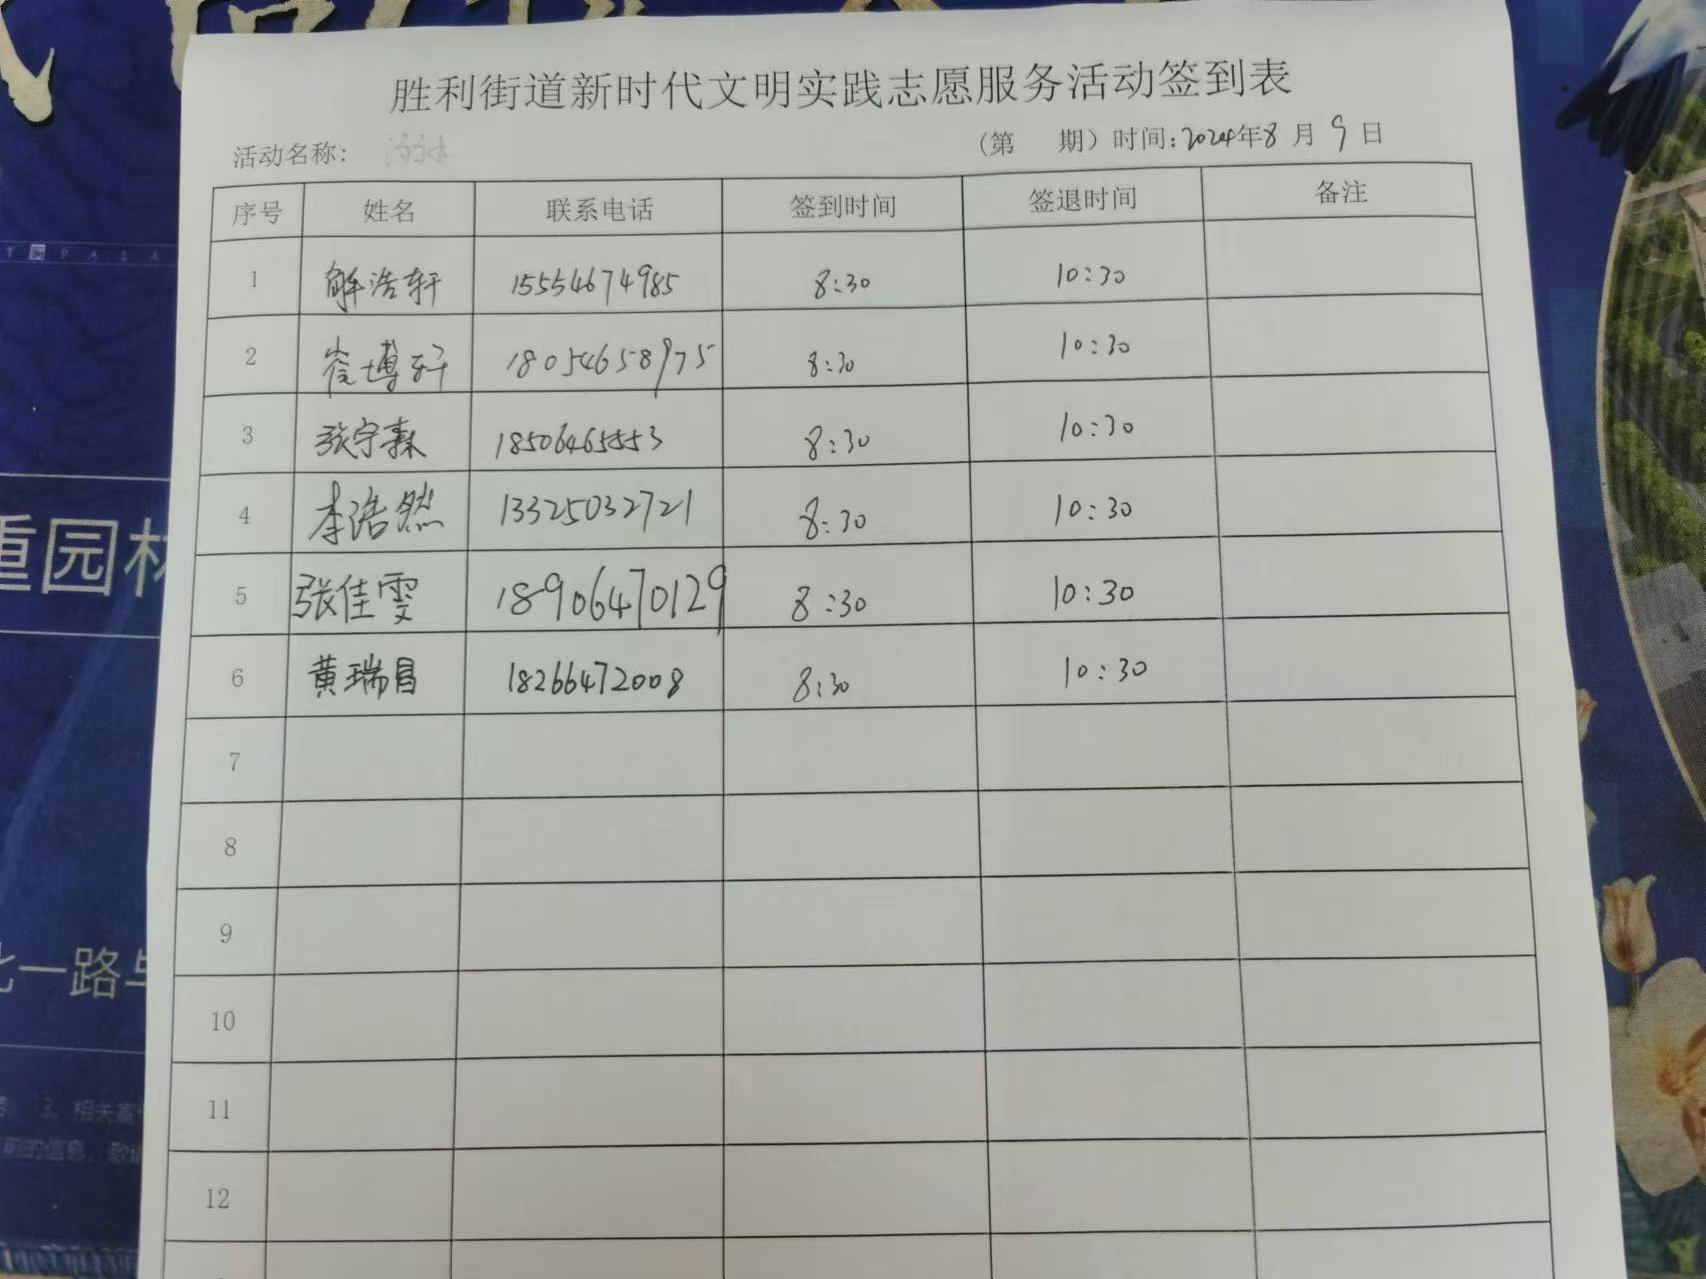 胜利街道新时代文明实践志愿服务活动签到表
活动名称: (第 期) 时间:2024年8月9日
序号 姓名 联系电话 签到时间 签退时间 备注
1 解浩轩 15554674985 8:30 10:30
2 崔博轩 18054658975 8:30 10:30
3 张宇森 18506465553 8:30 10:30
4 李浩然 13325032721 8:30 10:30
5 张佳雯 18906470129 8:30 10:30
6 黄瑞昌 18266472008 8:30 10:30
7
8
9
10
11
12
重园林
一路与
相关宣
前的信息,敬请